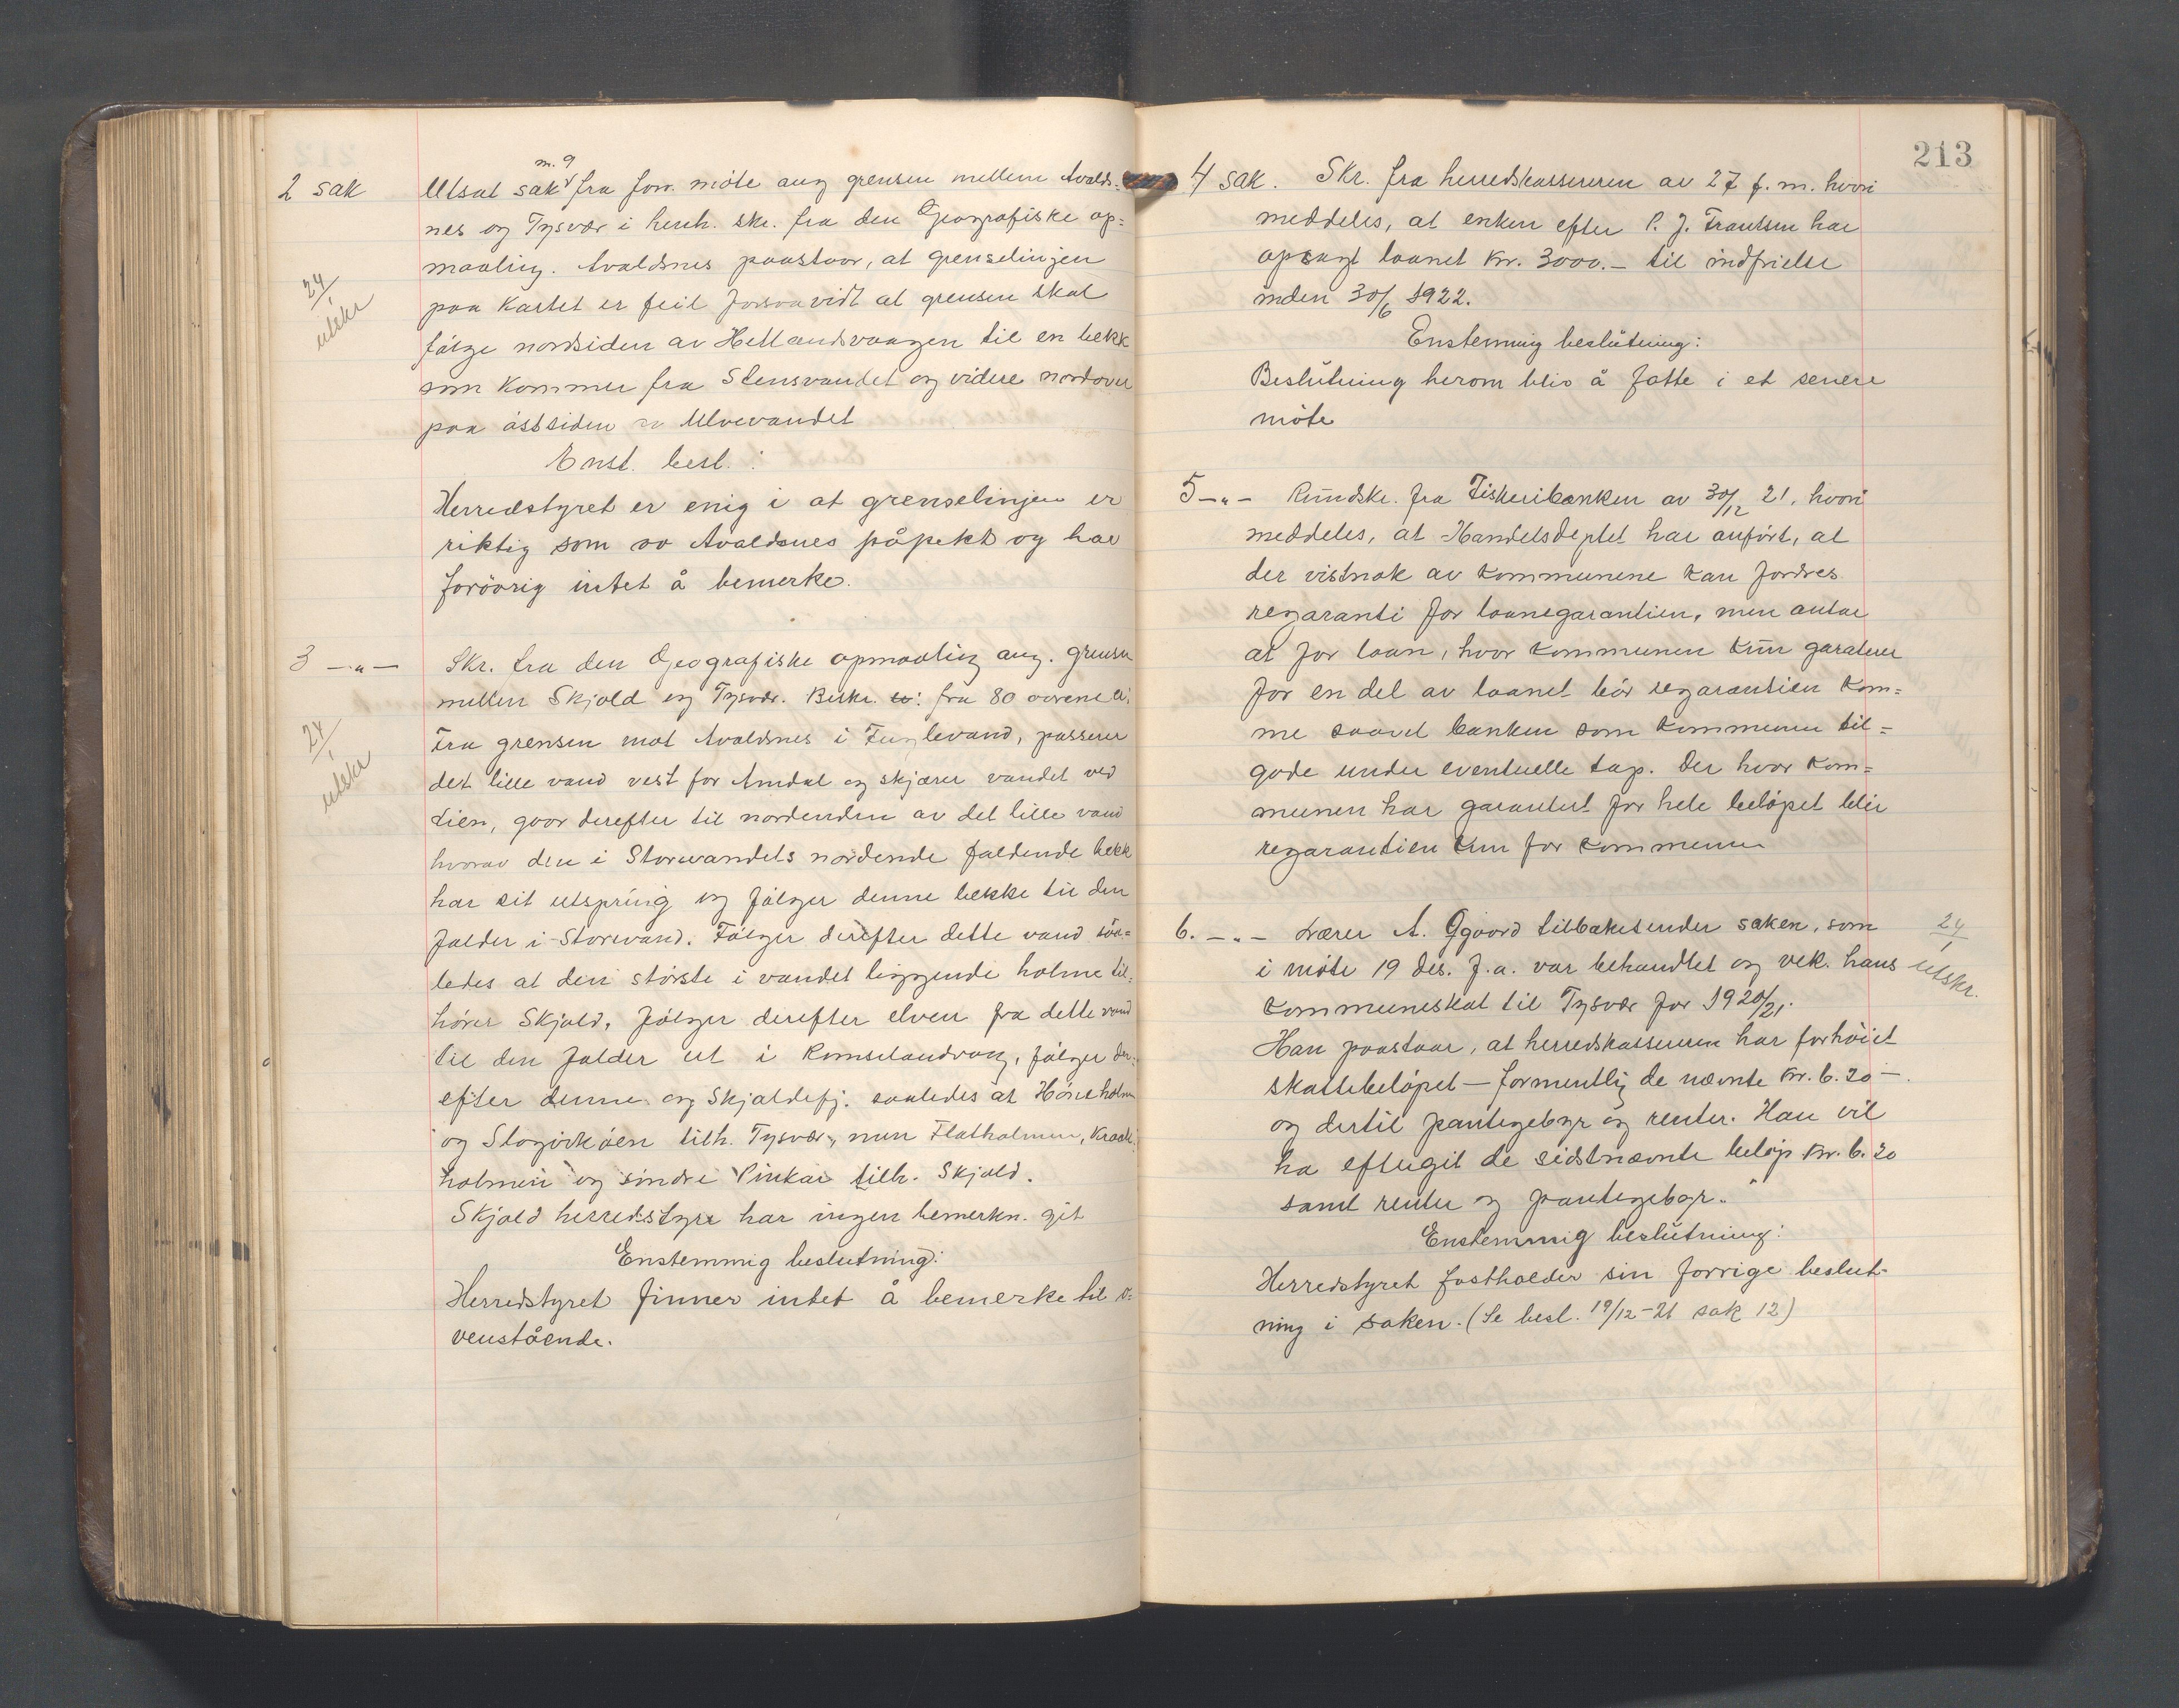 2 sak
m. 9
Utsat sak fra forr. möte ang grensen mellem Avalds-
nes og Tysvær i henh. skr. fra den Geografiske op=
maaling. Avaldsnes paastaar, at grenselinjen
24/1 utskr
paa kartet er feil forsaavidt at grensen skal
fölge nordsiden av Hellandsvaagen til en bekk
som kommer fra Stensvandet og videre nordover
paa östsiden av Ulvevandet
Enst. besl.:
Herredstyret er enig i at grenselinjen er
riktig som av Avaldsnes påpekt og har
forövrig intet å bemerke.
3 —„—
Skr. fra den Geografiske opmaaling ang. grensen
mellem Skjold og Tysvær. Beskr. fra 80
24/1 utskr
Fra grensen mot Avaldsnes i Fuglevand, passerer
det lille vand vest for Amdal og skjærer vandet ved
Lien, gaar derefter til nordenden av det lille vand
hvorav den i Storevandets nordende faldende bekk
har sit utspring og fölger denne bekke til den
falder i Storevand. Fölger derefter dette vand saa=
ledes at den störste i vandet liggende holme til=
hörer Skjold, fölger derefter elven fra dette vand
til den falder ut i Romselandvag, fölger der=
efter denne og Skjoldefj. saaledes at Höneholmen
og tilh. Tysvær, men Flatholmen, Kraak=
holmen og sindre Pinkar tilh. Skjold.
Skjold herredsstyre har ingen bemerkn. git
Enstemmig beslutning:
Herredstyret finner intet å bemerke til o=
venstående.
213
4 sak. Skr. fra herredskassereren av 27 f.m. hvori
meddeles, at enken efter P. J. Frantsen har
opsagt laanet kr. 3000.— til indfrielse
inden 30/6 1922.
Enstemmig beslutning:
Beslutning herom blir å fatte i et senere
möte
5 —„— Rundskr. fra Fiskeribanken av 30/12 21, hvori
meddeles, at Handelsdeptet har anfört, at
der vistnok av kommunene kan fordres
regaranti for laanegarantien, men antar
at for laan, hvor kommunen kun garaterer
for en del av laanet bör regarantien kom=
me saavel banken som kommunen til=
gode under eventuelle tap. Der hvor kom=
munen har garantert for hele belöpet blir
regarantien kun for kommunen
6. —„— Lærer A. Qgaard tilbakesender saken, som
24/1 utskr.
i möte 19 des. f.a. var behandlet og vek. hans
kommuneskat til Tysvær for 1920/21.
Han paastaar, at herredskassereren har forhöiet
skattebelöpet — formentlig de nævnte kr. 6.20 —
og dertil pantegebyr og renter. Han vil
ha eftergit de sidstnævnte belöp kr. 6.20
samt renter og pantegebyr.
Enstemmig beslutning:
Herredstyret fastholder sin forrige beslut-
ning i saken. (Se besl. 19/12-21 sak 12)